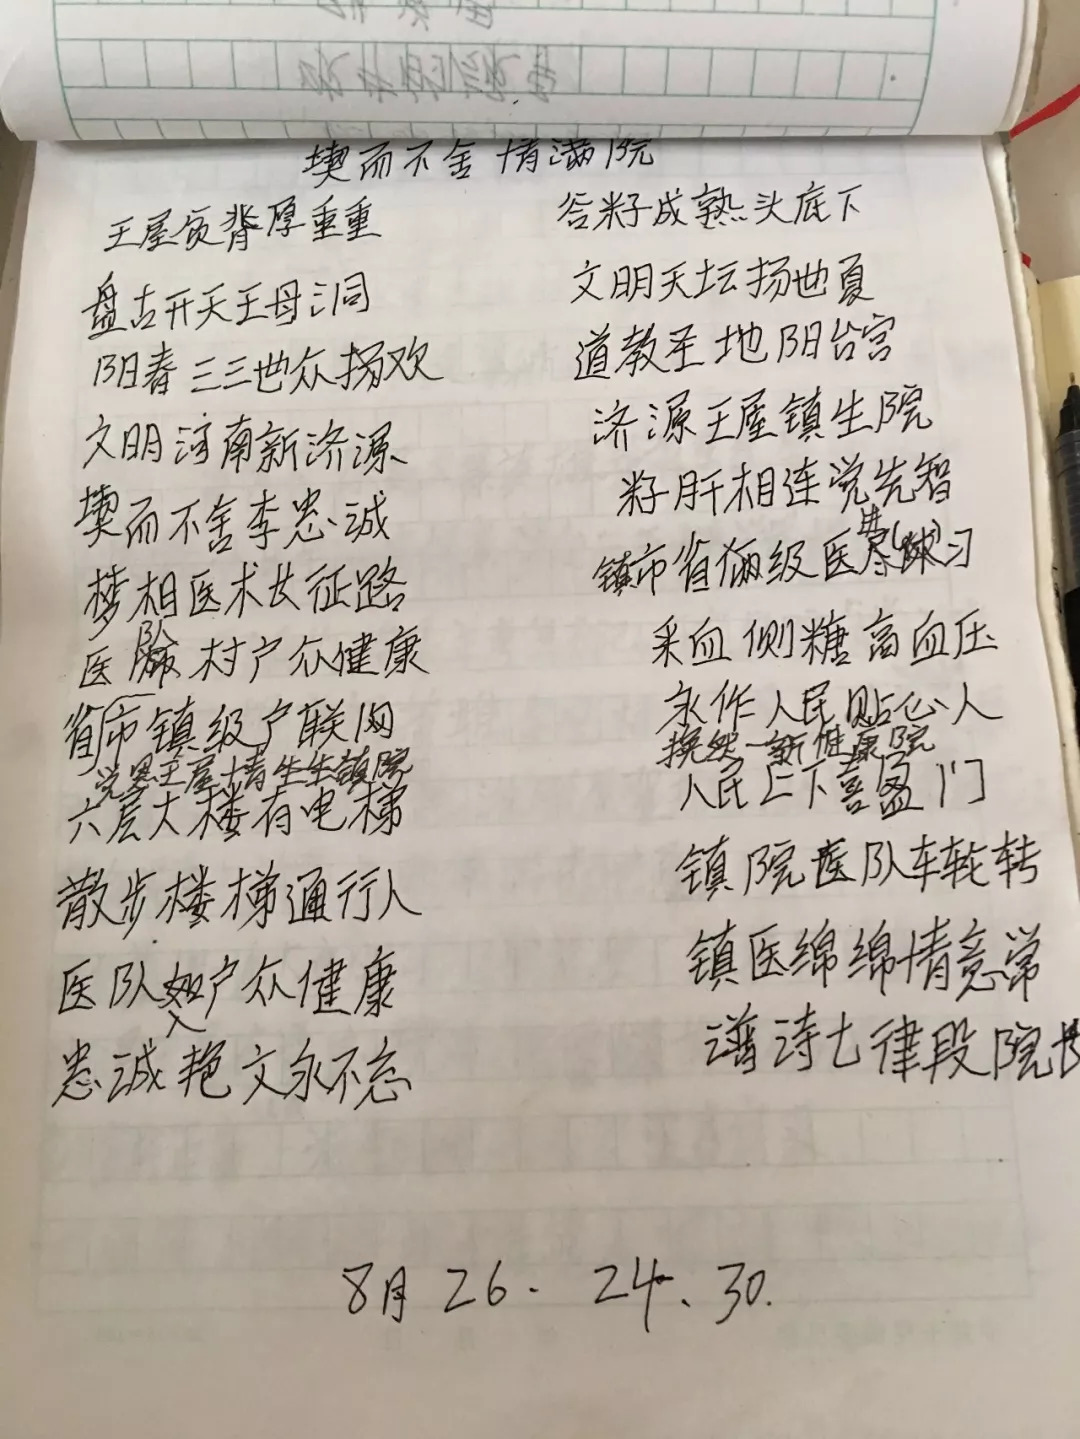 揳而不舍 情满院
王屋负背厚重重 谷籽成熟头底下
盘古开天王母洞 文明天坛扬也夏
阳春三三世众扬欢 道教圣地阳台宫
文明河南新济源 济源王屋镇生院
揳而不舍李忠诚 籽肝相连党先智
梦相医术长征路 镇市省俩级医 进 习
医 队 村户众健康 采血侧糖高血压
省市镇级户联网 永作人民贴心人
党恩王屋情生生镇院 换然一新健康院
六层大楼有电梯 人民上下喜盈门
散步楼梯通行人 镇院医队车轮转
医队入户众健康 镇医绵绵情意常
忠诚艳文永不忘 谱诗七律段院长
8月26. 24、30.